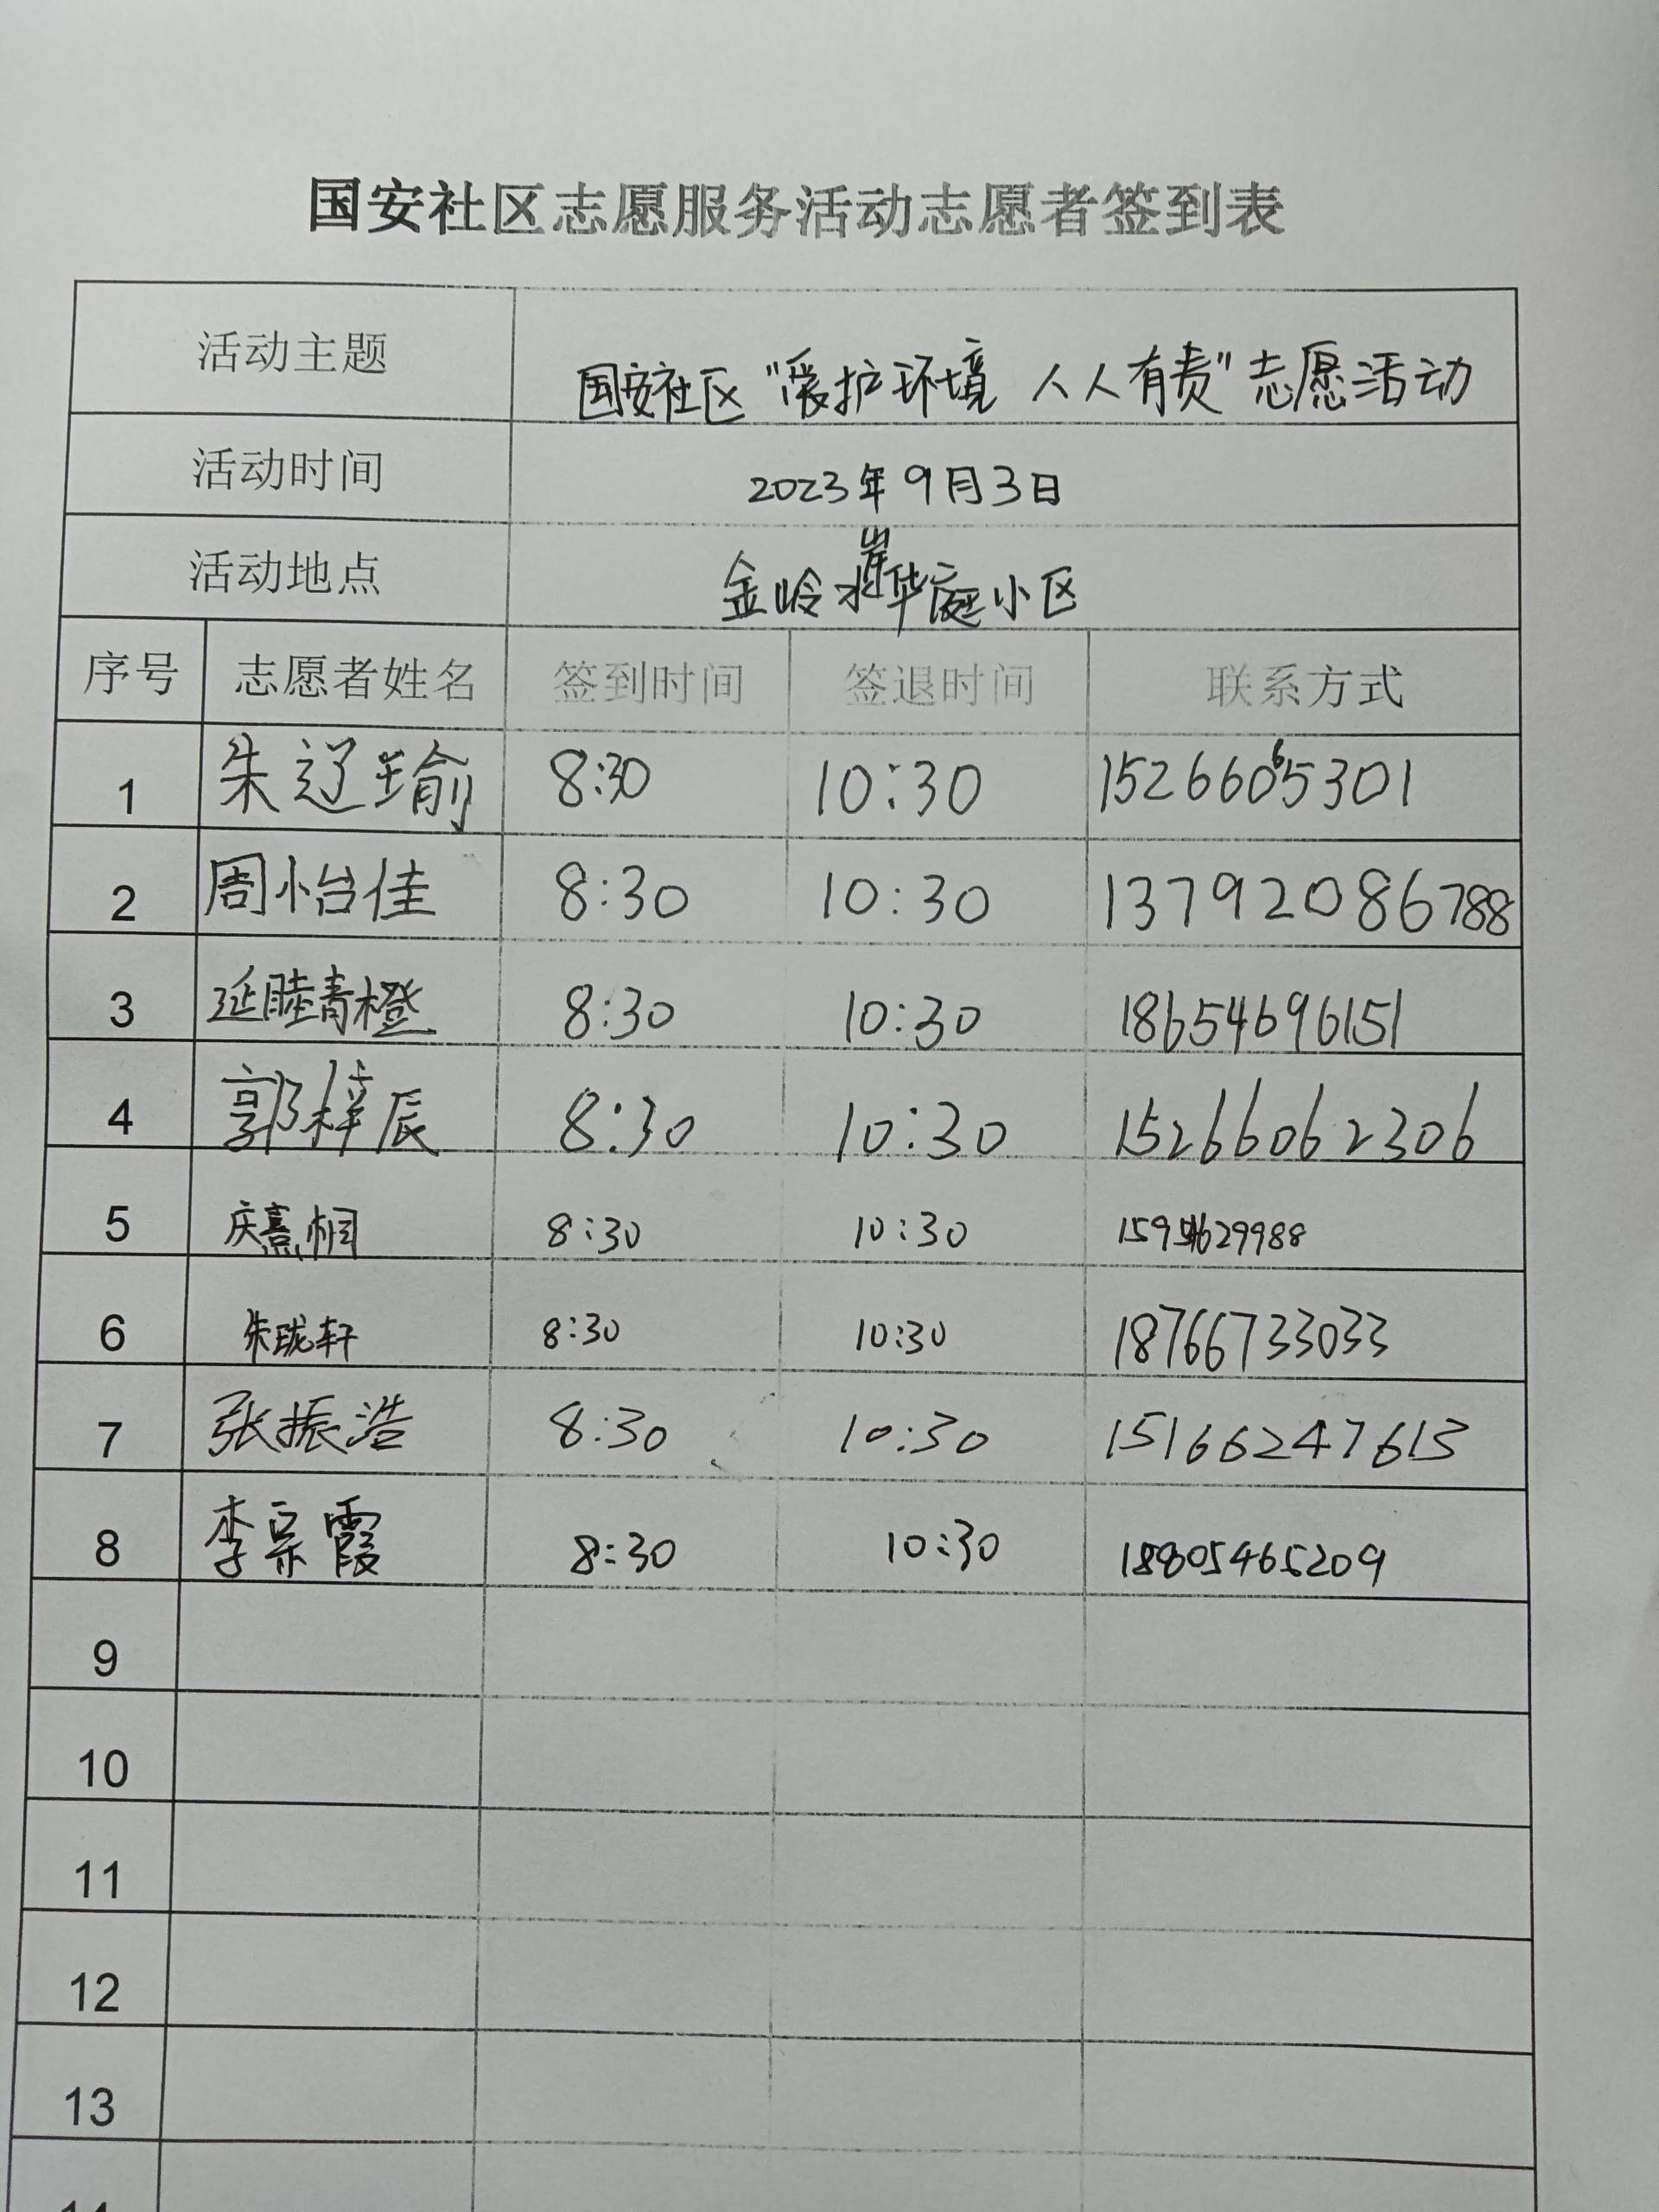 国安社区志愿服务活动志愿者签到表
活动主题 国安社区“爱护环境 人人有责”志愿活动
活动时间 2023年9月3日
活动地点 金岭水岸华庭小区
序号 志愿者姓名 签到时间 签退时间 联系方式
1 朱辽瑜 8:30 10:30 15266065301
2 周怡佳 8:30 10:30 13792086788
3 延睦青橙 8:30 10:30 18654696151
4 郭梓辰 8:30 10:30 15266062306
5 庆熹桐 8:30 10:30 15954629988
6 朱珑轩 8:30 10:30 18766733033
7 张振浩 8:30 10:30 15166247613
8 李宗霞 8:30 10:30 18805465209
9
10
11
12
13